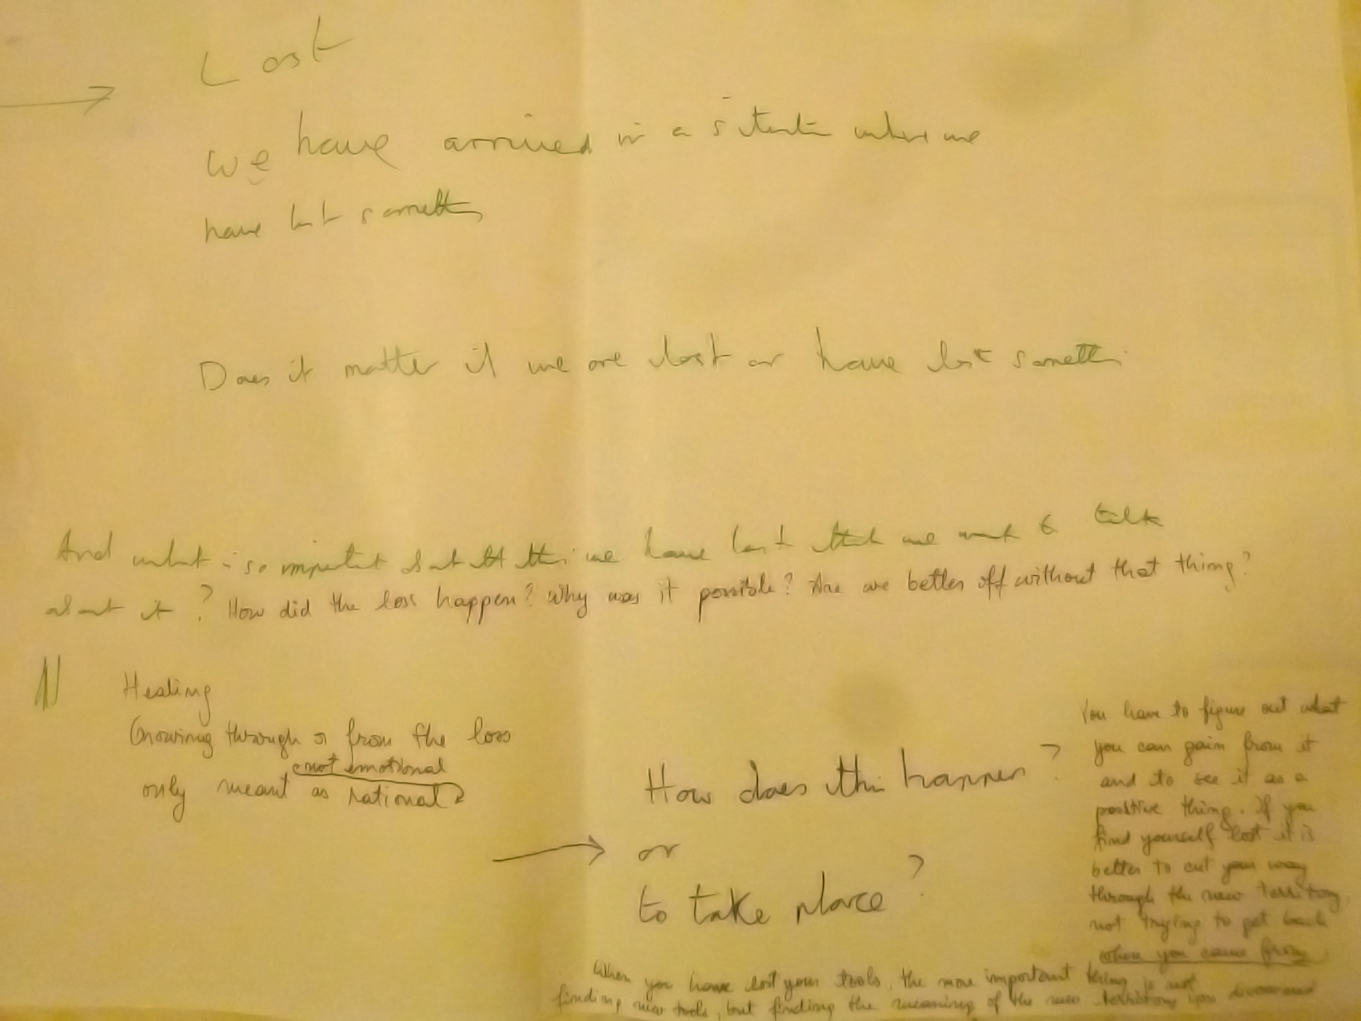 Lost
We have arrived in a situation where we
have lost something
Does it matter if we are lost or have lost something
And what is so important about the thing we have lost that we want to talk
about it? How did the loss happen? Why was it possible? Are we better off without that thing?
Healing
Growing through or from the loss
not emotional
only meant as rational
How does this happen?
or
to take place?
You have to figure out what
you can gain from it
and to see it as a
positive thing. If you
find yourself lost it is
better to cut your way
through the new territory,
not trying to get back
where you came from
When you have lost your tools, the more important thing is not
finding new tools, but finding the meaning of the new territory you discovered